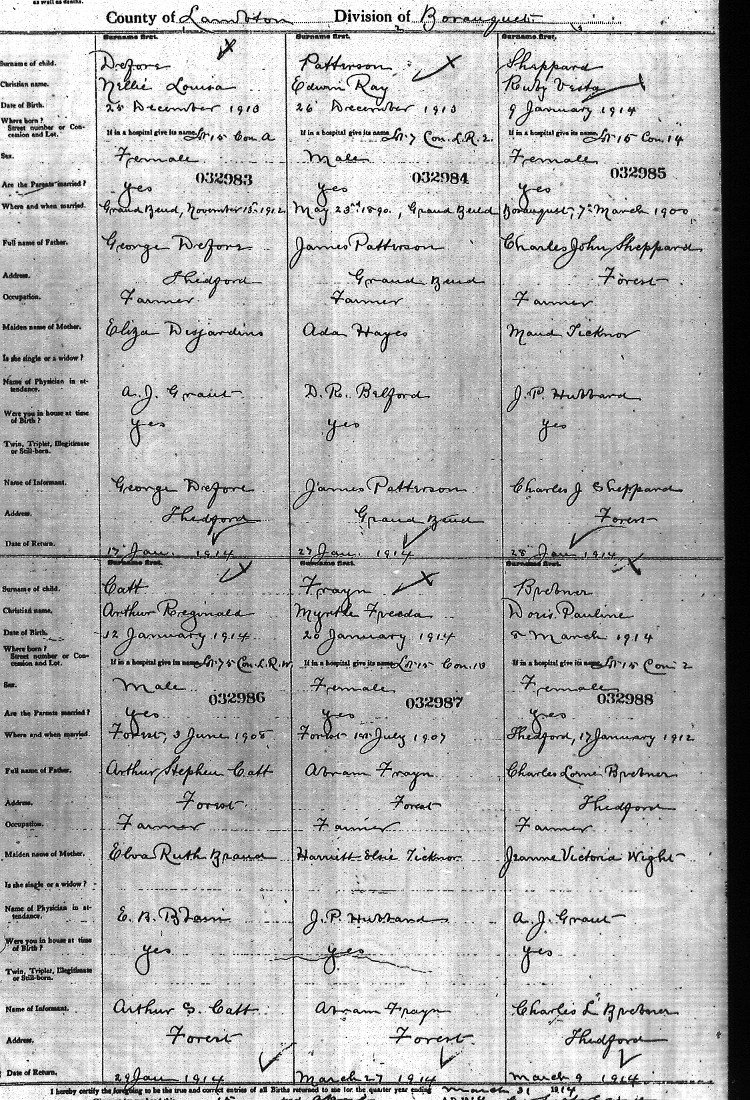 as well as deaths.
County of Lambton Division of Bosanquet
Surname first. Surname first. Surname first.
Surname of child. Defore Patterson Sheppard
Christian name. Nellie Louisa Edwin Ray Ruby Vesta
Date of Birth. 25 December 1913 26 December 1913 9 January 1914
Where born?
Street number or Con-
cession and Lot. If in a hospital give its name. Lot 15 Con. A If in a hospital give its name. Lot 7 Con. L.R. 2. If in a hospital give its name. Lot 15 Con. 14
Sex. Female Male Female
032983 032984 032985
Are the Parents married? yes yes yes
Where and when married. Grand Bend, November 13th 1912 May 23rd 1890, Grand Bend Bosanquet, 7th March 1900
Full name of Father. George Defore James Patterson Charles John Sheppard
Address. Thedford Grand Bend Forest
Occupation. Farmer Farmer Farmer
Maiden name of Mother. Eliza Desjardins Ada Hayes Maud Ticknor
Is she single or a widow?
Name of Physician in at-
tendance. A. J. Grant D. R. Belford J. P. Hubbard
Were you in house at time
of Birth? yes yes yes
Twin, Triplet, Illegitimate
or Still-born.
Name of Informant. George Defore James Patterson Charles J Sheppard
Address. Thedford Grand Bend Forest
Date of Return. 17 Jan. 1914 27 Jan. 1914 28 Jan 1914
Surname first. Surname first. Surname first.
Surname of child. Catt Frayn Brebner
Christian name. Arthur Reginald Myrtle Freeda Doris Pauline
Date of Birth. 12 January 1914 20 January 1914 March 1914
Where born?
Street number or Con-
cession and Lot. If in a hospital give its name. Lot 75 Con. L.R.W. If in a hospital give its name. Lot 15 Con. 13 If in a hospital give its name. Lot 15 Con 2
Sex. Male Female Female
032986 032987 032988
Are the Parents married? yes yes yes
Where and when married. Forest, 3 June 1908 Forest 1st July 1907 Thedford, 17 January 1912
Full name of Father. Arthur Stephen Catt Abram Frayn Charles Lorne Brebner
Address. Forest Forest Thedford
Occupation. Farmer Farmer Farmer
Maiden name of Mother. Elva Ruth Brand Harriett Elsie Ticknor Jeanne Victoria Wight
Is she single or a widow?
Name of Physician in at-
tendance. E. B. J. P. Hubbard A. J. Grant
Were you in house at time
of Birth? yes yes yes
Twin, Triplet, Illegitimate
or Still-born.
Name of Informant. Arthur S. Catt Abram Frayn Charles L Brebner
Address. Forest Forest Thedford
Date of Return. 29 Jan 1914 March 27 1914 March 9 1914
I hereby certify the foregoing to be the true and correct entries of all Births returned to me for the quarter year ending March 31 1914